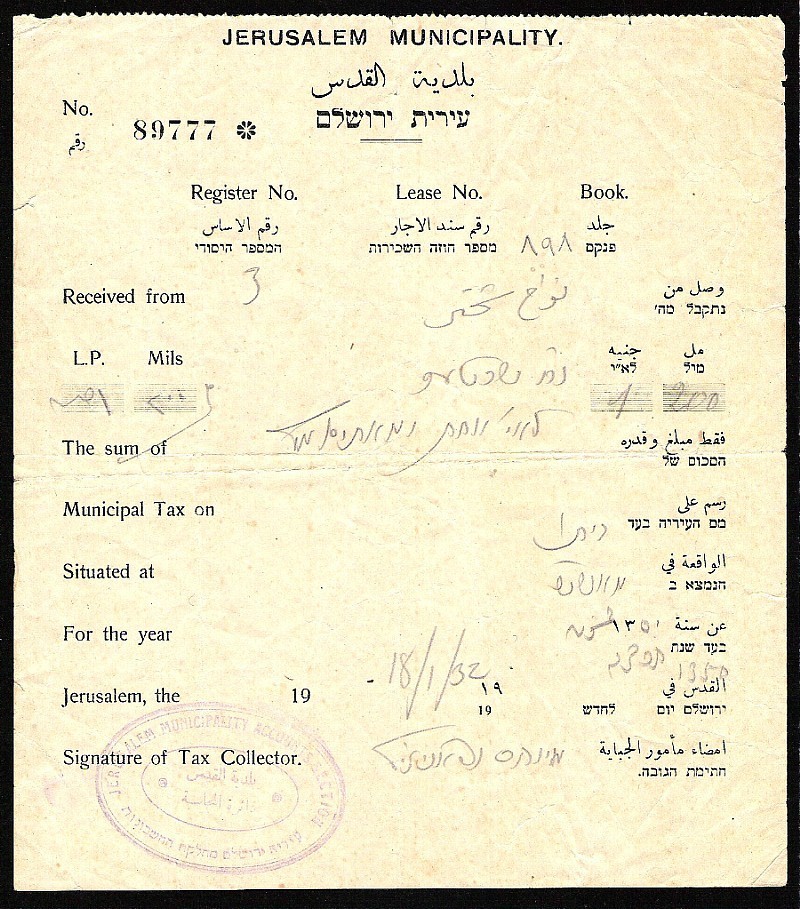 JERUSALEM MUNICIPALITY.
بلدية القدس
עירית ירושלם
No. 89777 *
رقم
Register No. Lease No. Book.
رقم الاساس رقم سند الاجار جلد
המספר היסודי מספר חוזה השכירות פנקס
٨٩٨
Received from 3 وصل من
נתקבל מה'
L.P. Mils جنيه مل
לא"י מיל
1 200
The sum of فقط مبلغ وقدره
הסכום של
לא"י אחת ומאתים מיל
Municipal Tax on رسم على
מס העיריה בעד
Situated at الواقعة في
הנמצא ב
For the year عن سنة ١٣٥٠
בעד שנת 1350
Jerusalem, the 19 18/1/32 ١٩ القدس في
19 ירושלים יום לחדש
Signature of Tax Collector. امضاء مأمور الجباية
חתימת הגובה.
JERUSALEM MUNICIPALITY ACCOUNTS SECTION
بلدية القدس
دائرة المحاسبة
עירית ירושלם מחלקת החשבונות